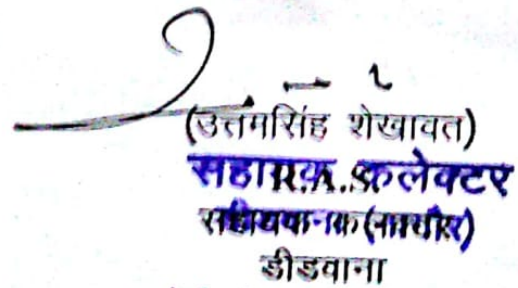 (उत्तमसिंह शेखावत)
सहायक कलेक्टर
R.A.S.
डीडवाना